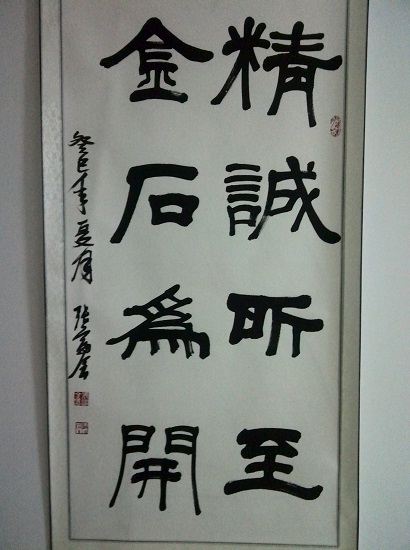 精誠所至
金石為開
癸巳年夏月 張富金